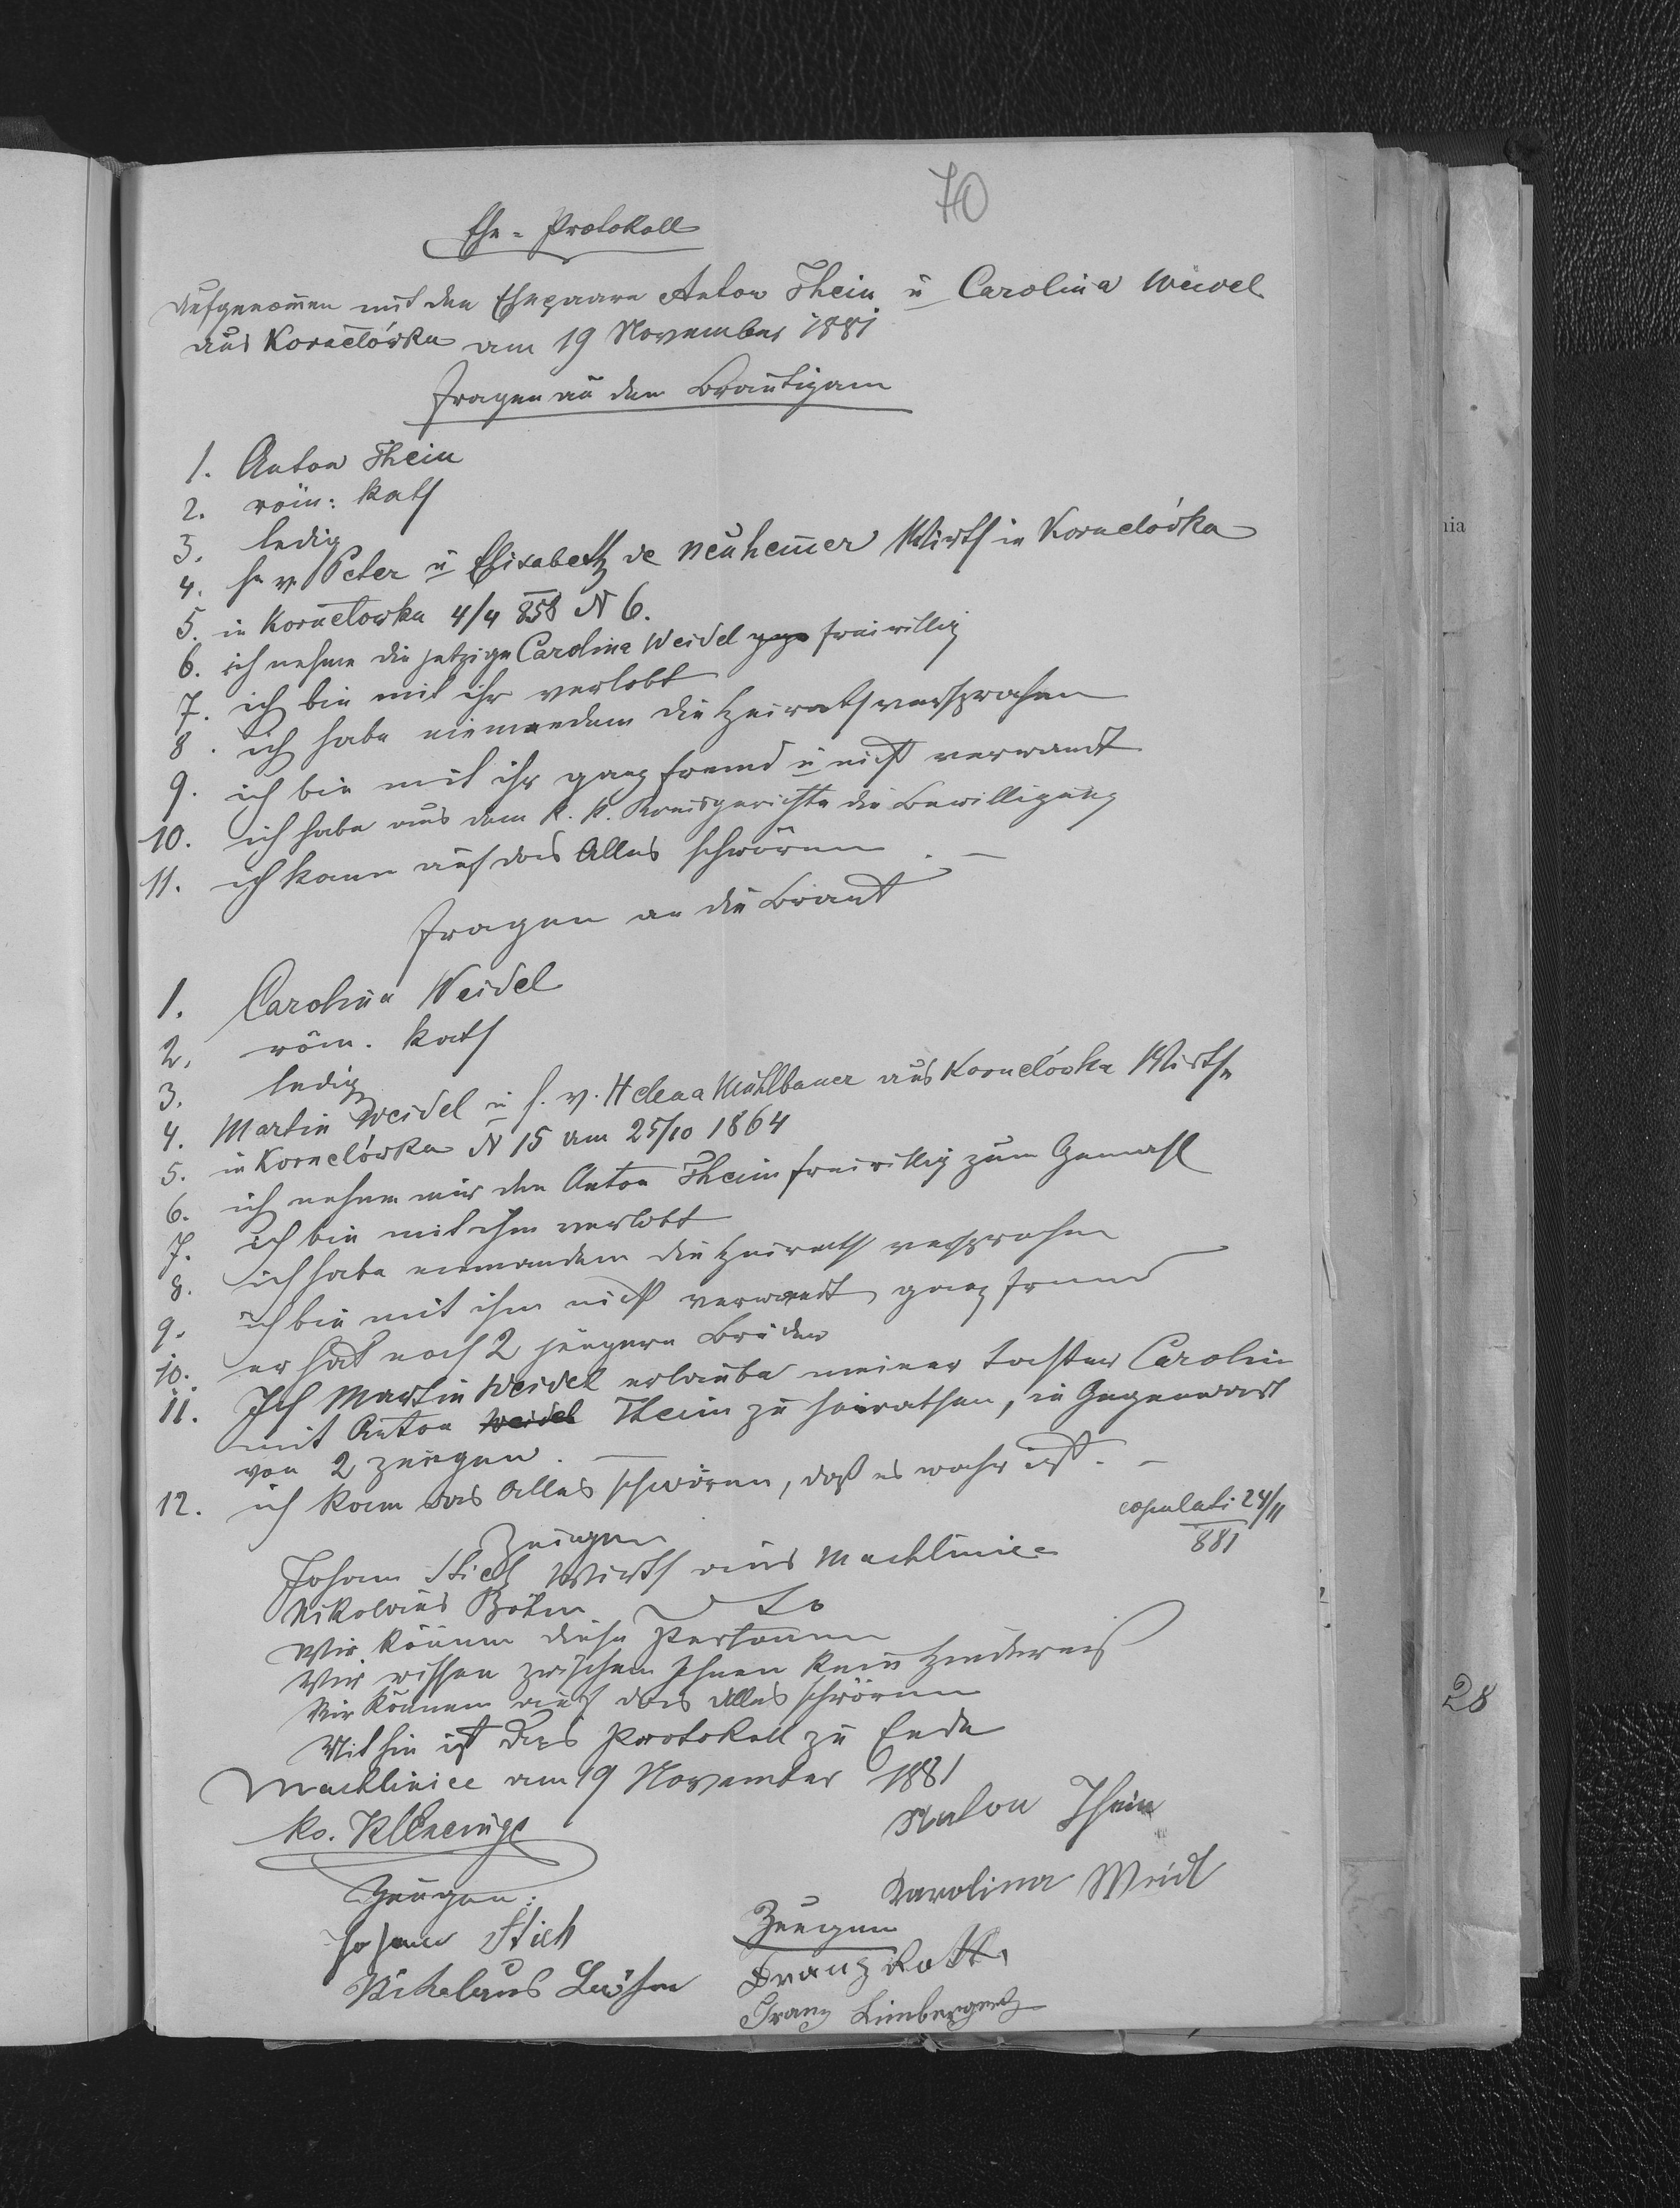 70
Ehe-Protokoll
Aufgenom̅en mit den Ehepaare Anton Thein u Carolina Weidel
aus Kornelówka am 19 November 1881
Fragen an den Bräutigam
1. Anton Thein
2. röm: kath
3. ledig
4. S. v. Peter u Elisabeth de Neuheimer Wirth in Kornelówka
5. in Kornelowka 4/4 858 N 6.
6. ich nehme die jetzige Carolina Weidel freiwillig
7. ich bin mit ihr verlobt
8. ich habe niemandem die Heirath versprochen
9. ich bin mit ihr ganz fremd u nicht verwandt
10. ich habe aus dem k. k. Kreisgerichte die Bewilligung
11. ich kann auf das Alles schwören. —
Fragen an die Braut
1. Carolina Weidel
2. röm. kath
3. ledig
4. Martin Weidel u Helena Mühlbauer aus Kornelówka Wirthe
5. in Kornelówka N 15 am 25/10 1864
6. ich nehme mir den Anton Thein freiwillig zum Gemahl
7. ich bin mit ihm verlobt
8. ich habe niemandem die Heirath versprochen
9. ich bin mit ihm nicht verwandt, ganz fremd
10. er hat noch 2 jüngere Brüder
11. Ich Martin Weidel erlaube meiner Tochter Carolin
mit Anton Weidel Thein zu heirathen, in Gegenwart
von 2 Zeugen. —
12. ich kann das Alles schwören, daß es wahr ist. —
copulati 24/11
881
Zeugen
Johann Stich Wirth aus Machliniec
Nikolaus Böhm do
Wir kennen diese Personen
Wir wissen zwischen Ihnen kein Hinderniß
Wir können auf das Alles schwören
Mithin ist das Protokoll zu Ende
Machliniec am 19 November 1881
Anton Thein
Karolina Weidl
Zeugen:
Johann Stich
Nikolaus Böhm
Zeugen
Franz Rott
Franz Limberger
nia
28